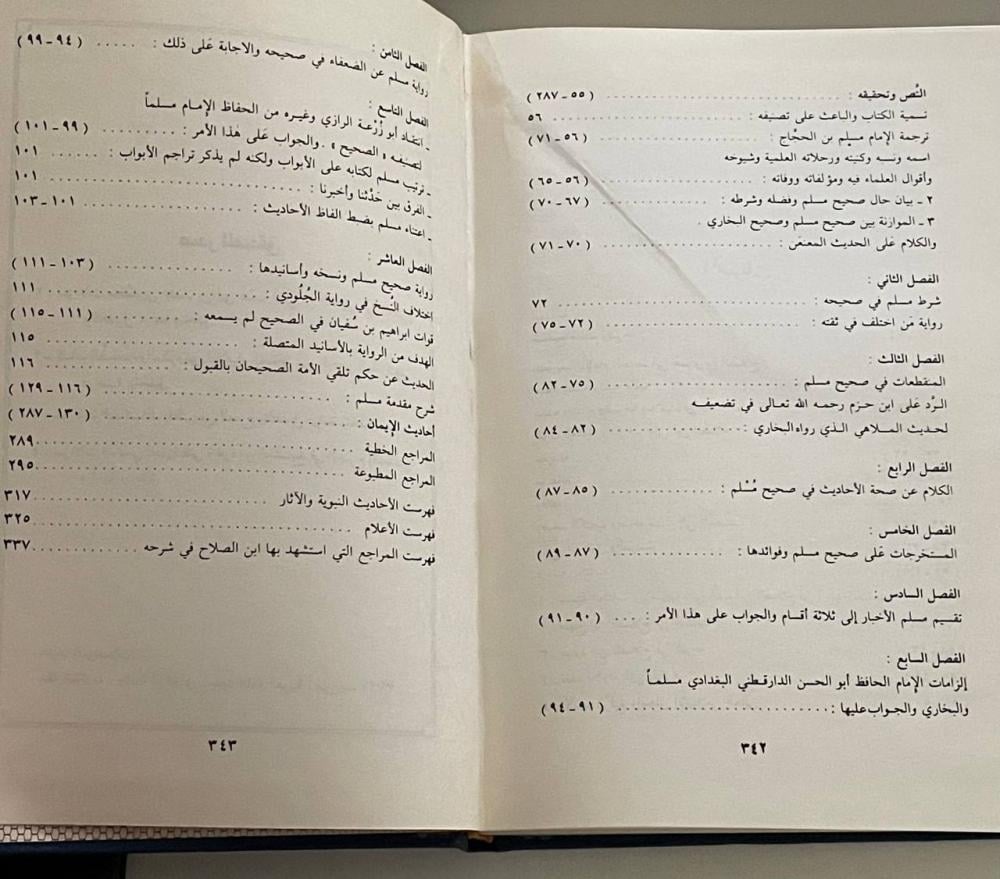 النُّص وتحقيقه : ( ٥٥ - ٢٨٧ )
تسمية الكتاب والباعث على تصنيفه : ٥٦
ترجمة الإمام مسلم بن الحجّاج : ( ٥٦ - ٧١ )
اسمه ونسبه وكنيته ورحلاته العلمية وشيوخه
وأقوال العلماء فيه ومؤلفاته ووفاته : ( ٥٦ - ٦٥ )
٢ - بيان حال صحيح مسلم وفضله وشرطه : ( ٦٧ - ٧٠ )
٣ - الموازنة بين صحيح مسلم وصحيح البخاري .
والكلام عَلى الحديث المعنعَن : ( ٧٠ - ٧١ )
الفصل الثاني :
شرط مسلم في صحيحه : ٧٢
رواية مَن اختلف في ثقته : ( ٧٢ - ٧٥ )
الفصل الثالث :
المنقطعات في صحيح مسلم : ( ٧٥ - ٨٢ )
الرَّد عَلى ابن حزم رحمه الله تعالى في تضعيفه
لحديث الملاهي الذي رواه البخاري : ( ٨٢ - ٨٤ )
الفصل الرابع :
الكلام عن صحة الأحاديث في صحيح مُسْلم : ( ٨٥ - ٨٧ )
الفصل الخامس :
المستخرجات عَلى صحيح مسلم وفوائدها : ( ٨٧ - ٨٩ )
الفصل السادس :
تقسيم مسلم الأخبار إلى ثلاثة أقسام والجواب على هذا الأمر : ... ( ٩٠ - ٩١ )
الفصل السابع :
إلزامات الإمام الحافظ أبو الحسن الدارقطني البغدادي مسلماً
والبخاري والجواب عليها : ( ٩١ - ٩٤ )
٣٤٢
الفصل الثامن :
رواية مسلم عن الضعفاء في صحيحه والاجابة عَلى ذلك : ..... ( ٩٤ - ٩٩ )
الفصل التاسع :
- انتقاد أبو زُرْعة الرازي وغيره من الحفاظ الإمام مسلماً
لتصنيفه « الصحيح » . والجواب عَلى هٰذا الأمر : ( ٩٩ - ١٠١ )
- ترتيب مسلم لكتابه على الأبواب ولكنه لم يذكر تراجم الأبواب : ١٠١
- الفرق بين حدّثنا وأخبرنا : ١٠١
- اعتناء مسلم بضبط الفاظ الأحاديث : ١٠١ - ١٠٣
الفصل العاشر :
رواية صحيح مسلم ونسخه وأسانيدها : ( ١٠٣ - ١١١ )
إختلاف النُسخ في رواية الجُلُودي : ١١١
فوات ابراهيم بن سُفيان في الصحيح لم يسمعه : ( ١١١ - ١١٥ )
الهدف من الرواية بالأسانيد المتصلة : ١١٥
الحديث عن حكم تلقي الأمة الصحيحان بالقبول : ١١٦
شرح مقدمة مسلم : ( ١١٦ - ١٢٩ )
أحاديث الإيمان : ( ١٣٠ - ٢٨٧ )
المراجع الخطية ٢٨٩
المراجع المطبوعة ٢٩٥
فهرست الأحاديث النبوية والآثار ٣١٧
فهرست الأعلام ٣٢٥
فهرست المراجع التي استشهد بها ابن الصلاح في شرحه ٣٣٧
٣٤٣